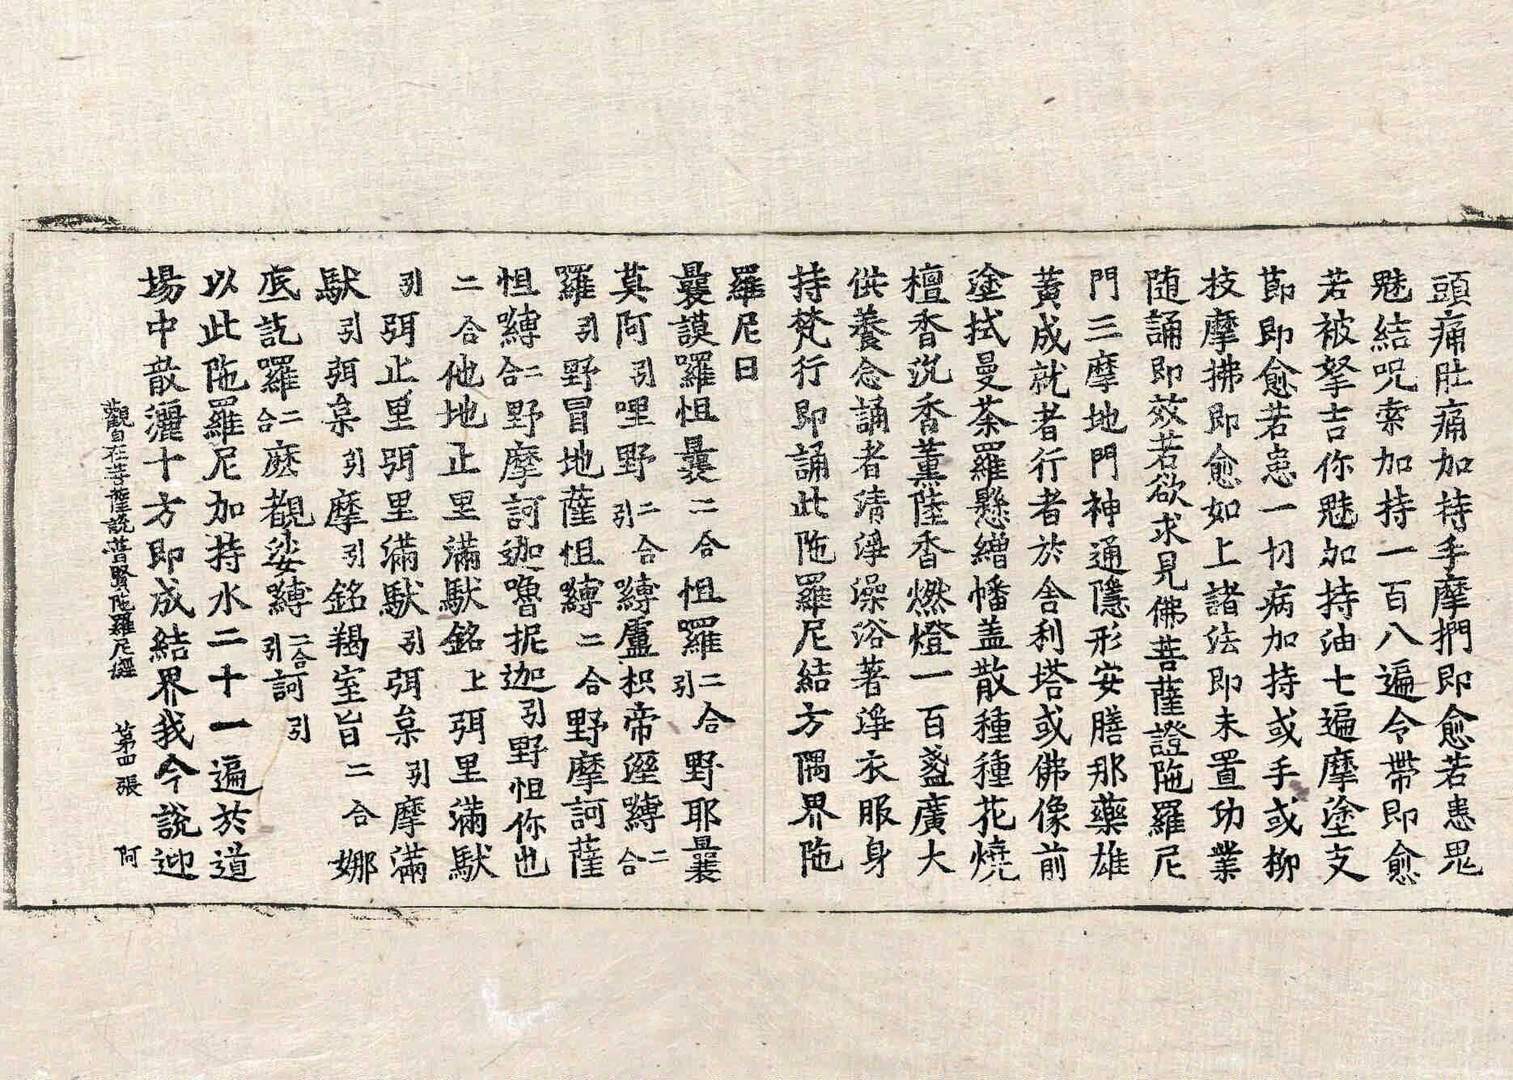 頭痛肚痛加持手摩捫即愈若患鬼
魅結呪索加持一百八遍令帶即愈
若被拏吉你魅加持油七遍摩塗支
莭即愈若患一切病加持或手或柳
枝摩拂即愈如上諸法即未置功業
随誦即效若欲求見佛菩薩證陁羅尼
門三摩地門神通隱形安膳那藥雄
黃成就者行者於舍利塔或佛像前
塗拭曼荼羅懸繒幡盖散種種花燒
檀香沉香薰陸香燃燈一百盞廣大
供養念誦者清淨澡浴著淨衣服身
持梵行即誦此陁羅尼結方隅界陁
羅尼曰
曩謨囉怛曩二合怛羅二合引野耶曩
莫阿引哩野二合引嚩盧枳帝溼嚩二合
羅引野冒地薩怛嚩二合野摩訶薩
怛嚩二合野摩訶迦嚕抳迦引野怛你也
二合他地止里滿馱銘上弭里滿馱
引弭止里弭里滿馱引弭枲引摩滿
馱引弭枲引摩引銘羯室旨二合娜
底訖囉二合麽覩娑嚩二合引訶引
以此陁羅尼加持水二十一遍於道
場中散灑十方即成結界我今說迎
觀自在菩薩說普賢陁羅尼經　第四張　阿